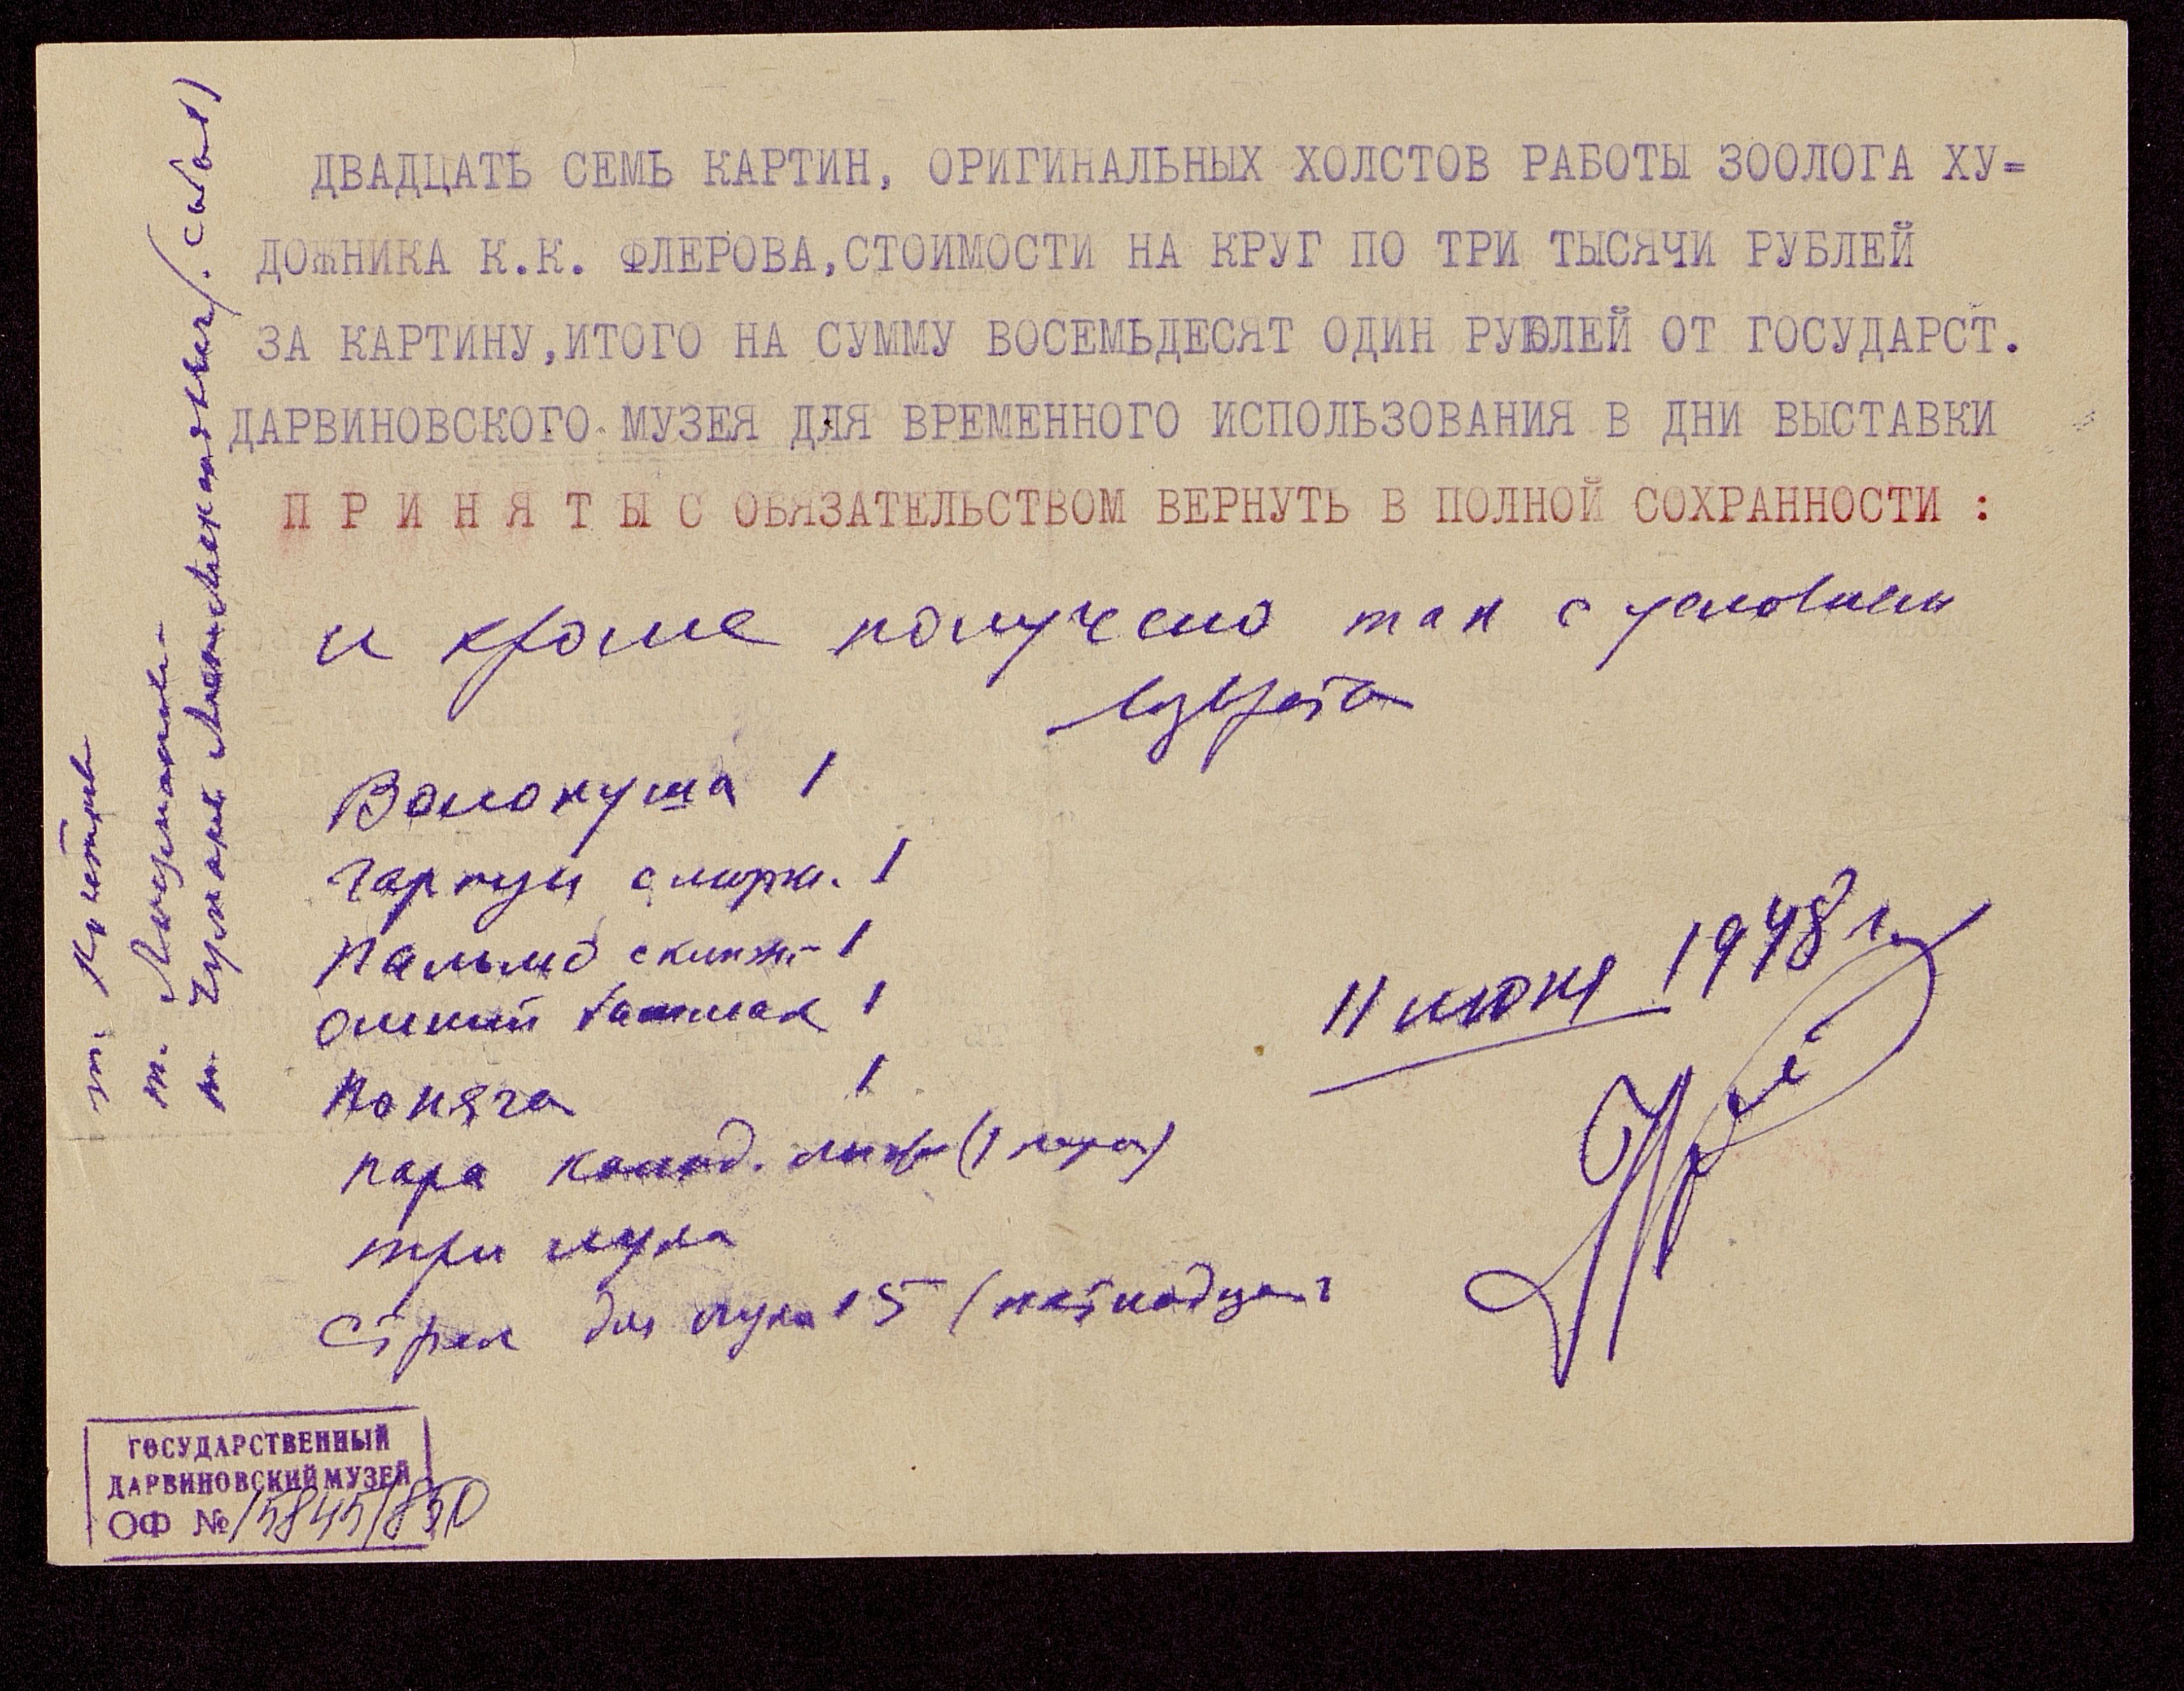 ДВАДЦАТЬ СЕМЬ КАРТИН, ОРИГИНАЛЬНЫХ ХОЛСТОВ РАБОТЫ ЗООЛОГА ХУ=
ДОЖНИКА К.К. ФЛЕРОВА,СТОИМОСТИ НА КРУГ ПО ТРИ ТЫСЯЧИ РУБЛЕЙ
ЗА КАРТИНУ,ИТОГО НА СУММУ ВОСЕМЬДЕСЯТ ОДИН РУБЛЕЙ ОТ ГОСУДАРСТ.
ДАРВИНОВСКОГО МУЗЕЯ ДЛЯ ВРЕМЕННОГО ИСПОЛЬЗОВАНИЯ В ДНИ ВЫСТАВКИ
П Р И Н Я Т Ы С ОБЯЗАТЕЛЬСТВОМ ВЕРНУТЬ В ПОЛНОЙ СОХРАННОСТИ :
и кроме получено так с условием
возврата
Волокуша 1
гарпун 1
Пальма 1
башмак 1
Поняга 1
пара лыж (1 пара)
три лука
Стрел для лука 15 (пятнадцать
11 июня 1948 г.
т.
т.
т.
ГОСУДАРСТВЕННЫЙ
ДАРВИНОВСКИЙ МУЗЕЙ
ОФ № 15845/850